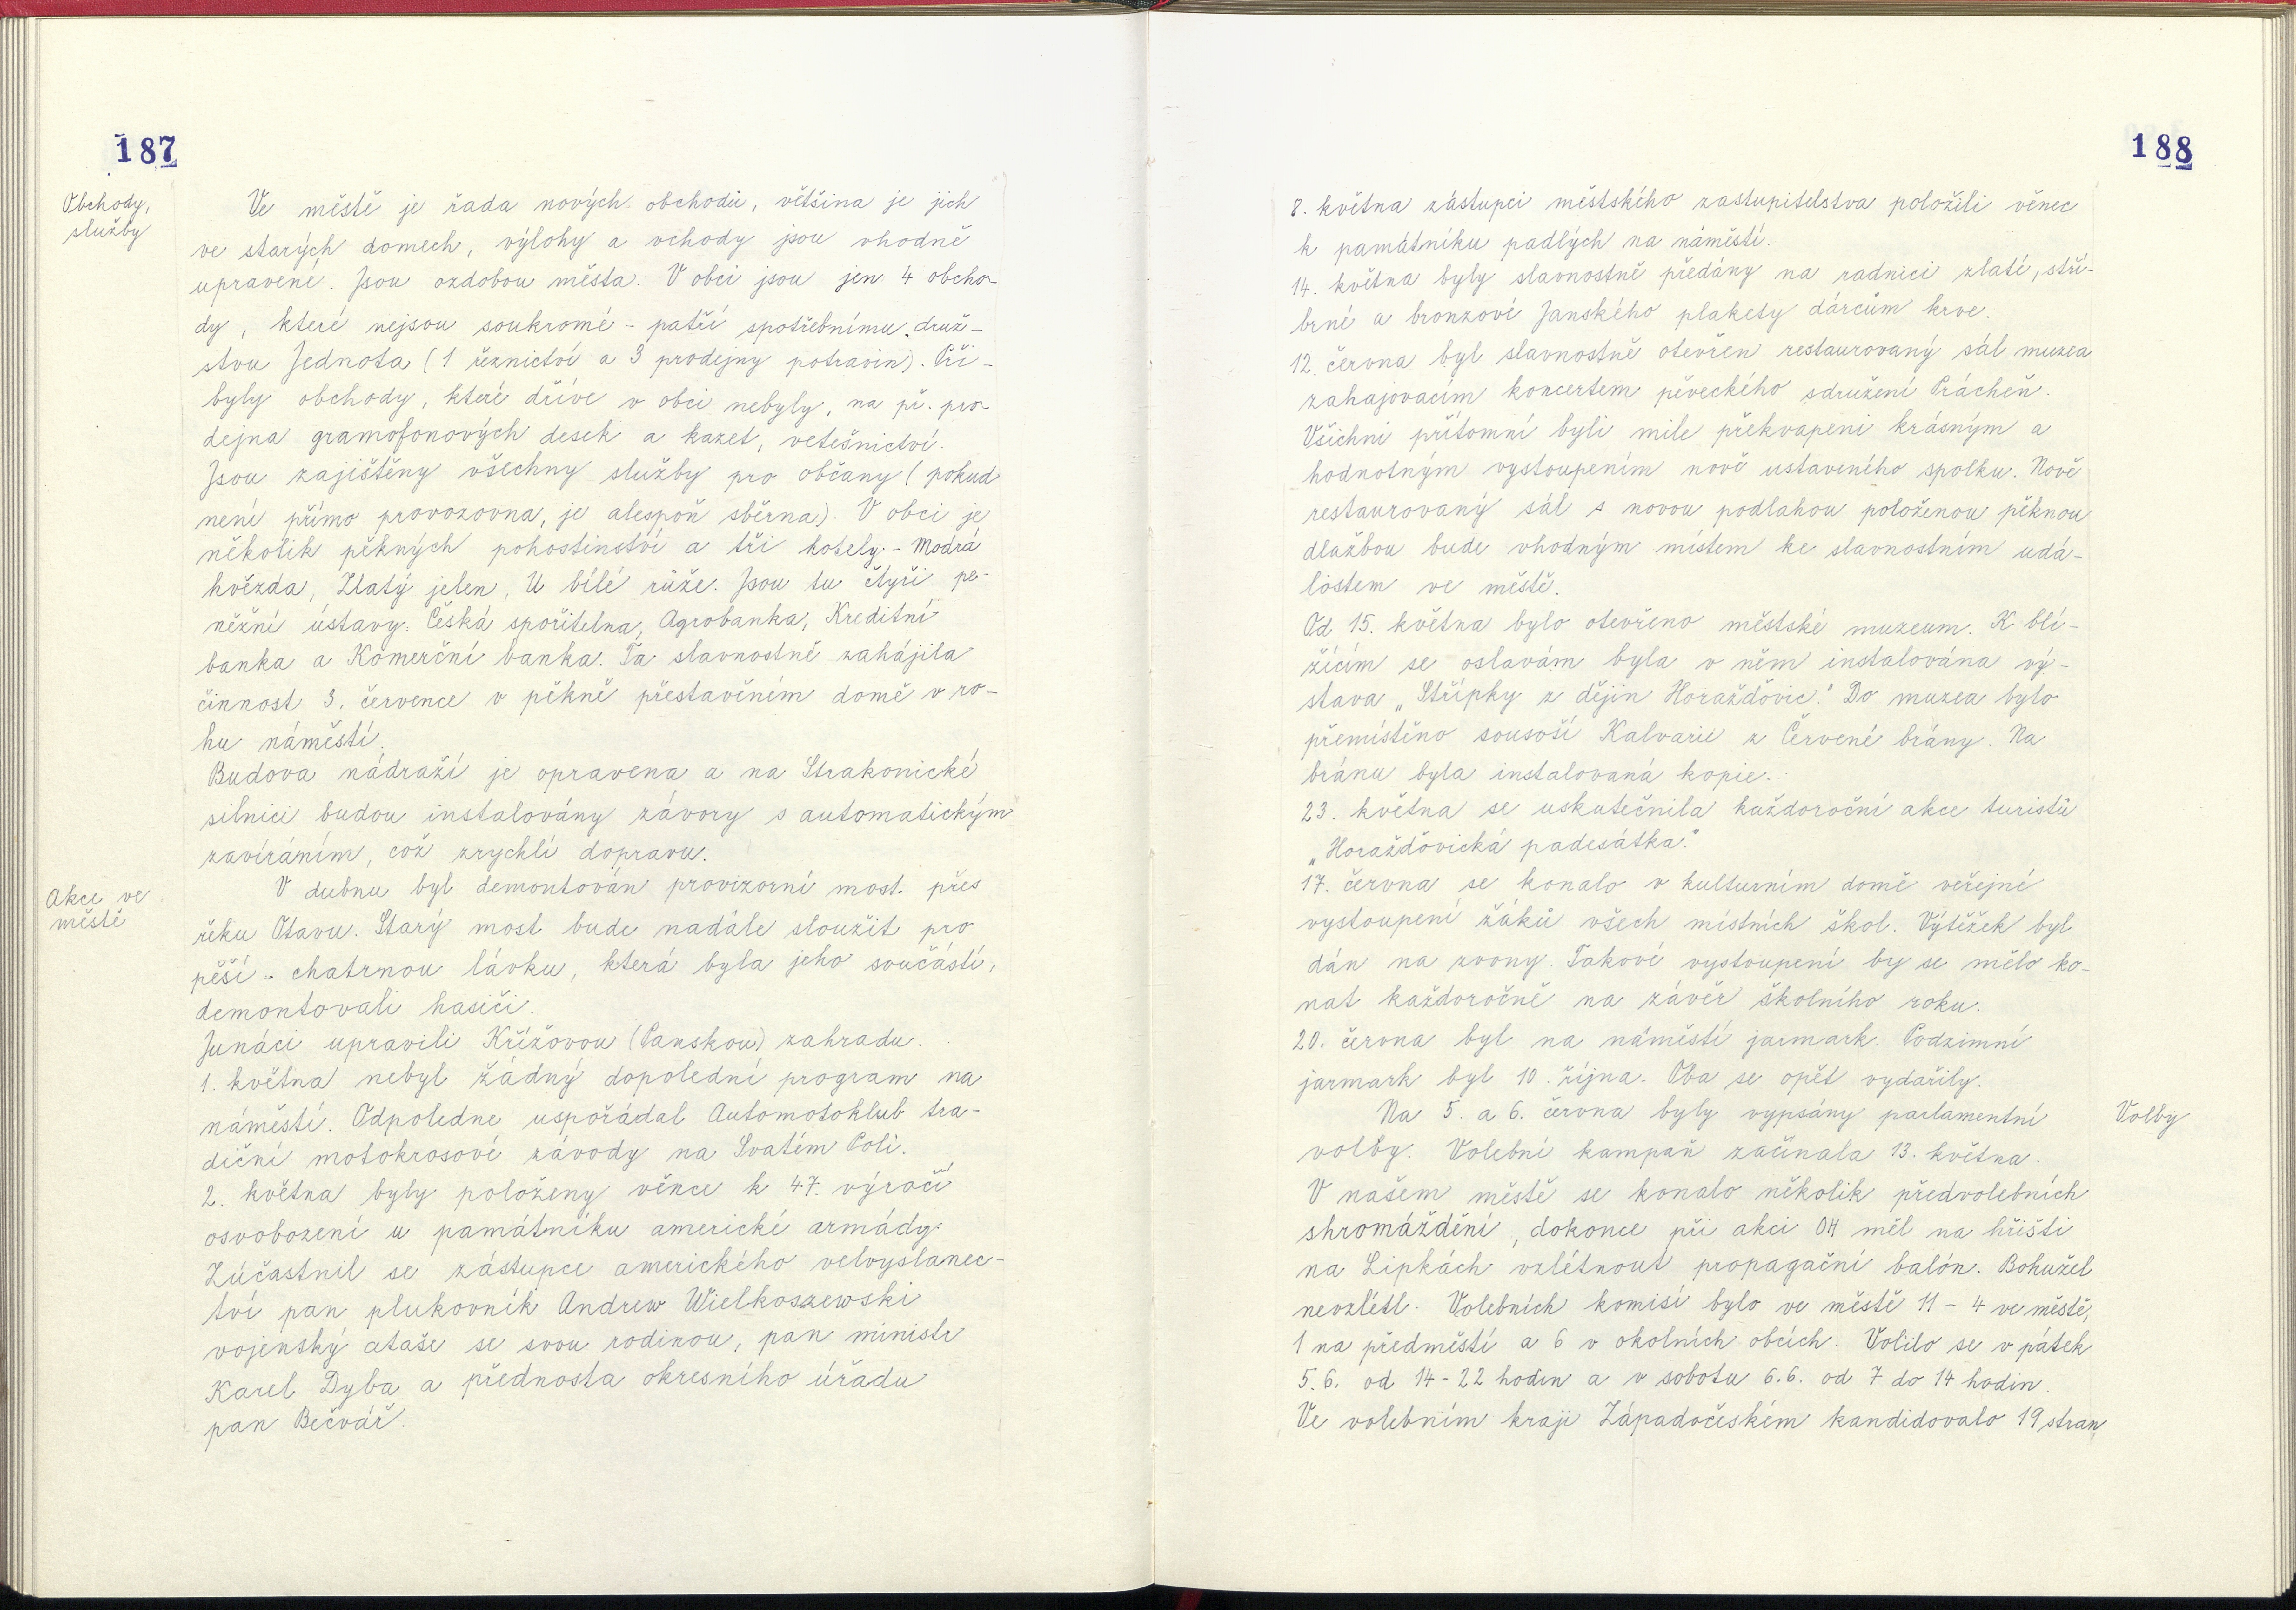 187
Obchody,
služby
Ve městě je řada nových obchodů, většina je jich
ve starých domech, výlohy a vchody jsou vhodně
upravené. Jsou ozdobou města. V obci jsou jen 4 obcho-
dy, které nejsou soukromé - patří spotřebnímu druž-
stvu Jednota (1 řeznictví a 3 prodejny potravin). Při-
byly obchody, které dříve v obci nebyly, na př. pro-
dejna gramofonových desek a kazet, vetešnictví.
Jsou zajištěny všechny služby pro občany (pokud
není přímo provozovna, je alespoň sběrna). V obci je
několik pěkných pohostinství a tři hotely - Modrá
hvězda, Zlatý jelen, U bílé růže. Jsou tu čtyři pe-
něžní ústavy: Česká spořitelna, Agrobanka, Kreditní
banka a Komerční banka. Ta slavnostně zahájila
činnost 3. července v pěkně přestavěném domě v ro-
hu náměstí.
Budova nádraží je opravena a na Strakonické
silnici budou instalovány závory s automatickým
zavíráním, což zrychlí dopravu.
Akce ve
městě
V dubnu byl demontován provizorní most přes
řeku Otavu. Starý most bude nadále sloužit pro
pěší - chatrnou lávku, která byla jeho součástí,
demontovali hasiči.
Junáci upravili Křížovou (Panskou) zahradu.
1. května nebyl žádný dopolední program na
náměstí. Odpoledne uspořádal Automotoklub tra-
diční motokrosové závody na Svatém Poli.
2. května byly položeny věnce k 47. výročí
osvobození u památníku americké armády.
Zúčastnil se zástupce amerického velvyslanec-
tví pan plukovník Andrew Wielkoszewski
vojenský ataše se svou rodinou, pan ministr
Karel Dyba a přednosta okresního úřadu
pan Bečvář.
188
8. května zástupci městského zastupitelstva položili věnec
k památníku padlých na náměstí.
14. května byly slavnostně předány na radnici zlaté, stří-
brné a bronzové Janského plakety dárcům krve.
12. června byl slavnostně otevřen restaurovaný sál muzea
zahajovacím koncertem pěveckého sdružení Prácheň.
Všichni přítomní byli mile překvapeni krásným a
hodnotným vystoupením nově ustaveného spolku. Nově
restaurovaný sál s novou podlahou položenou pěknou
dlažbou bude vhodným místem ke slavnostním udá-
lostem ve městě.
Od 15. května bylo otevřeno městské muzeum. K blí-
žícím se oslavám byla v něm instalována vý-
stava „Střípky z dějin Horažďovic." Do muzea bylo
přemístěno sousoší Kalvarie z Červené brány. Na
bránu byla instalovaná kopie.
23. května se uskutečnila každoroční akce turistů
„Horažďovická padesátka."
17. června se konalo v kulturním domě veřejné
vystoupení žáků všech místních škol. Výtěžek byl
dán na zvony. Takové vystoupení by se mělo ko-
nat každoročně na závěr školního roku.
20. června byl na náměstí jarmark. Podzimní
jarmark byl 10. října. Oba se opět vydařily.
Volby
Na 5. a 6. června byly vypsány parlamentní
volby. Volební kampaň začínala 13. května.
V našem městě se konalo několik předvolebních
shromáždění, dokonce při akci OH měl na hřišti
na Lipkách vzlétnout propagační balón. Bohužel
nevzlétl. Volebních komisí bylo ve městě 11 - 4 ve městě,
1 na předměstí a 6 v okolních obcích. Volilo se v pátek
5.6. od 14-22 hodin a v sobotu 6.6. od 7 do 14 hodin.
Ve volebním kraji Západočeském kandidovalo 19 stran